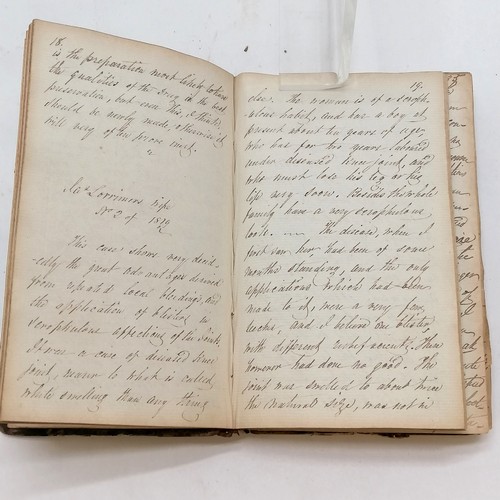 18.
is the preparation most likely to have
the qualities of the drug in the best
preservation, but even this, I think,
should be newly made, otherwise it
will very often prove inert.
"
Jas Lorrimers wife
No 2 of 18
This case shows very decid-
edly the great advantages derived
from repeated local bleedings and
the application of blisters in
scrophulous affections of the Joints.
It was a case of diseased knee
joint, nearer to what is called,
white swelling than any thing
19.
else. The woman is of a scroph-
ulous habit, and has a boy at
present about ten years of age,
who has for two years laboured
under diseased knee joint, and
who must lose his leg or his
life very soon. Besides the whole
family have a very scrophulous
look. — The disease, when I
first saw her, had been of some
months standing, and the only
applications which had been
made to it, were a very few
leeches, and I believe one blister,
with different rubefacients. These
however had done no good. The
joint was swelled to about twice
the natural size, was not in